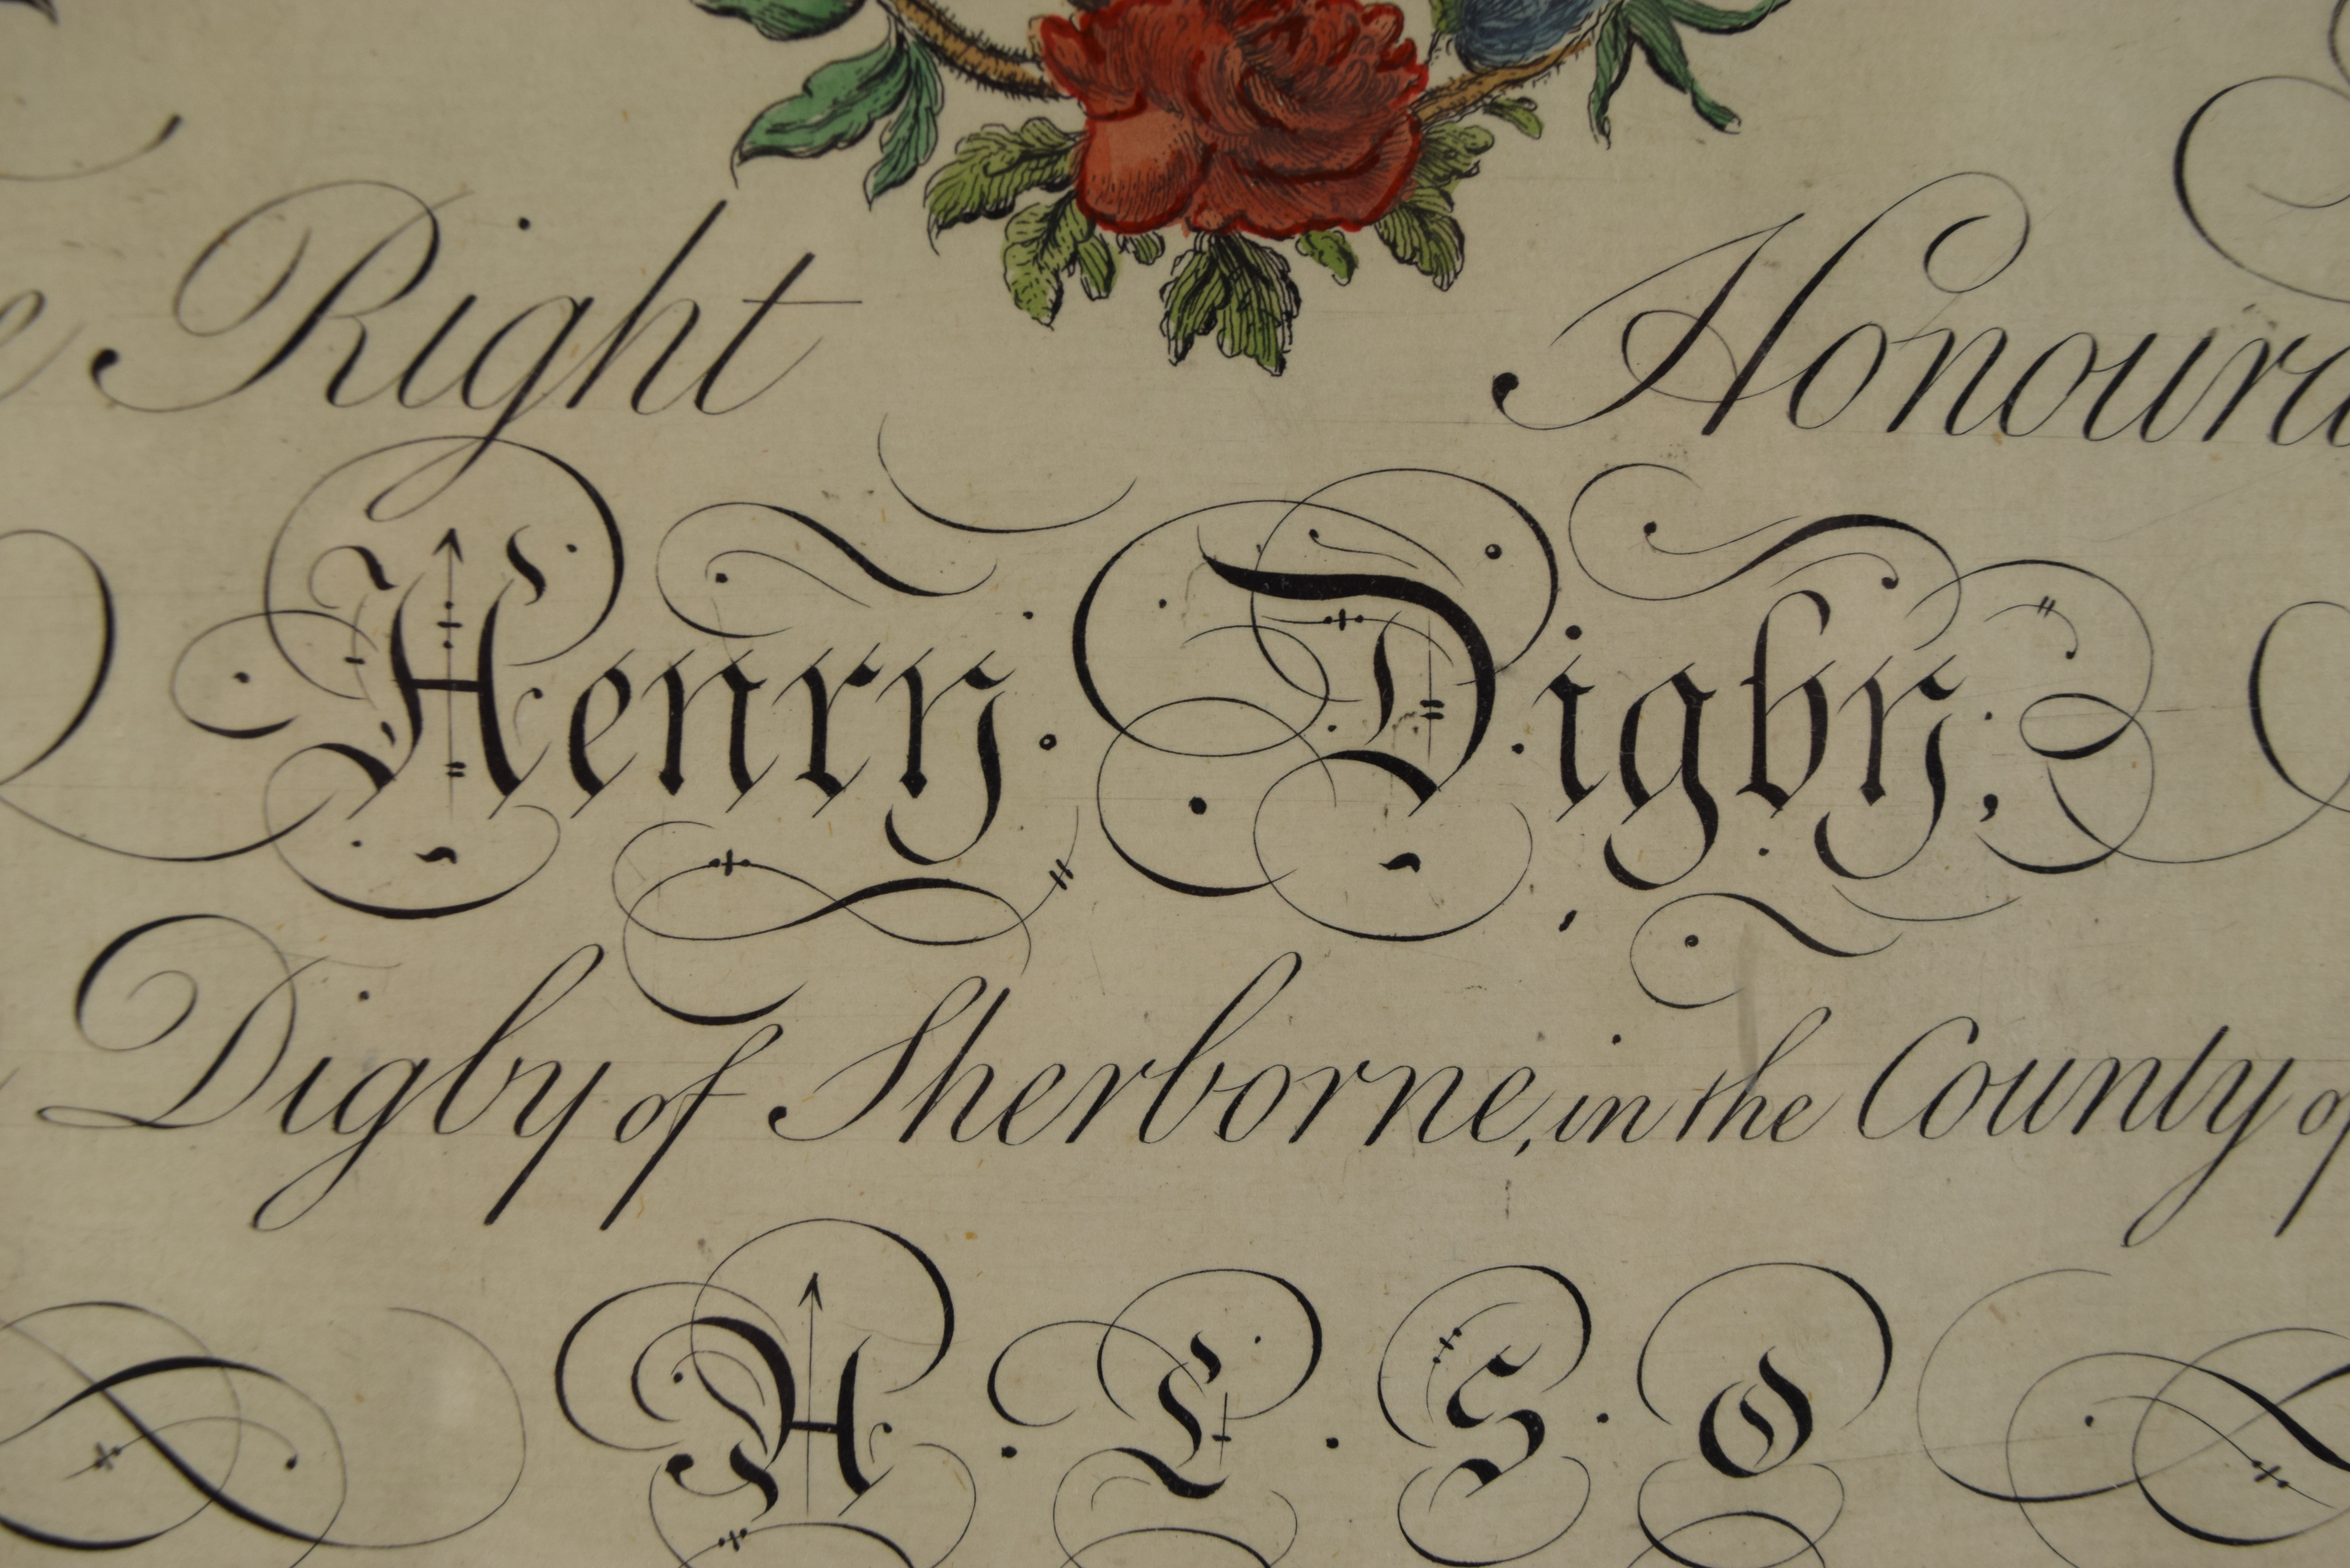 e Right Honoura
Henry Digby,
Digby of Sherborne, in the County of
A L S O